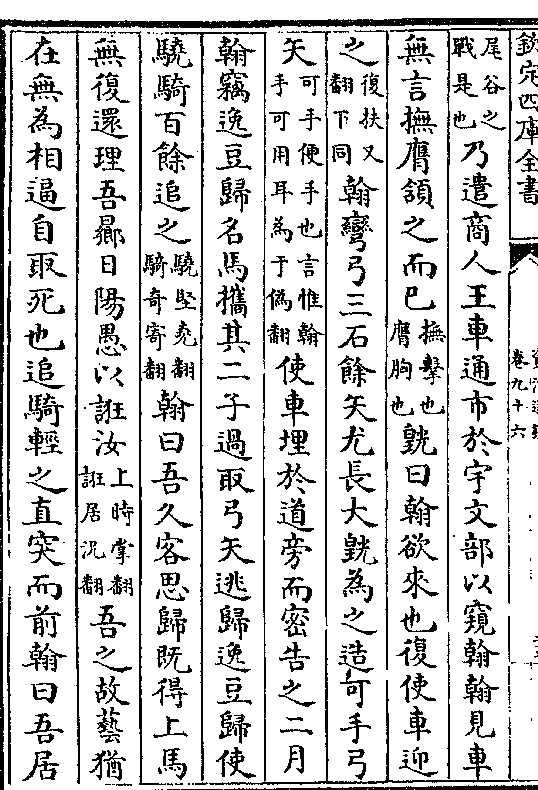 欽定四庫全書
卷九十六
尾谷之戰是也乃遣商人王車通市於宇文部以窺翰翰見車
無言撫膺頷之而已撫擊也膺胸也皝曰翰欲來也復使車迎
之復扶又翻下同翰彎弓三石餘矢尤長大皝為之造可手弓
矢可手便手也言惟翰手可用耳為于偽翻使車埋於道旁而密告之二月
翰竊逸豆歸名馬攜其二子過取弓矢逃歸逸豆歸使
驍騎百餘追之驍堅堯翻騎奇寄翻翰曰吾久客思歸既得上馬
無復還理吾曏日陽愚以誑汝上時掌翻誑居況翻吾之故藝猶
在無為相逼自取死也追騎輕之直突而前翰曰吾居